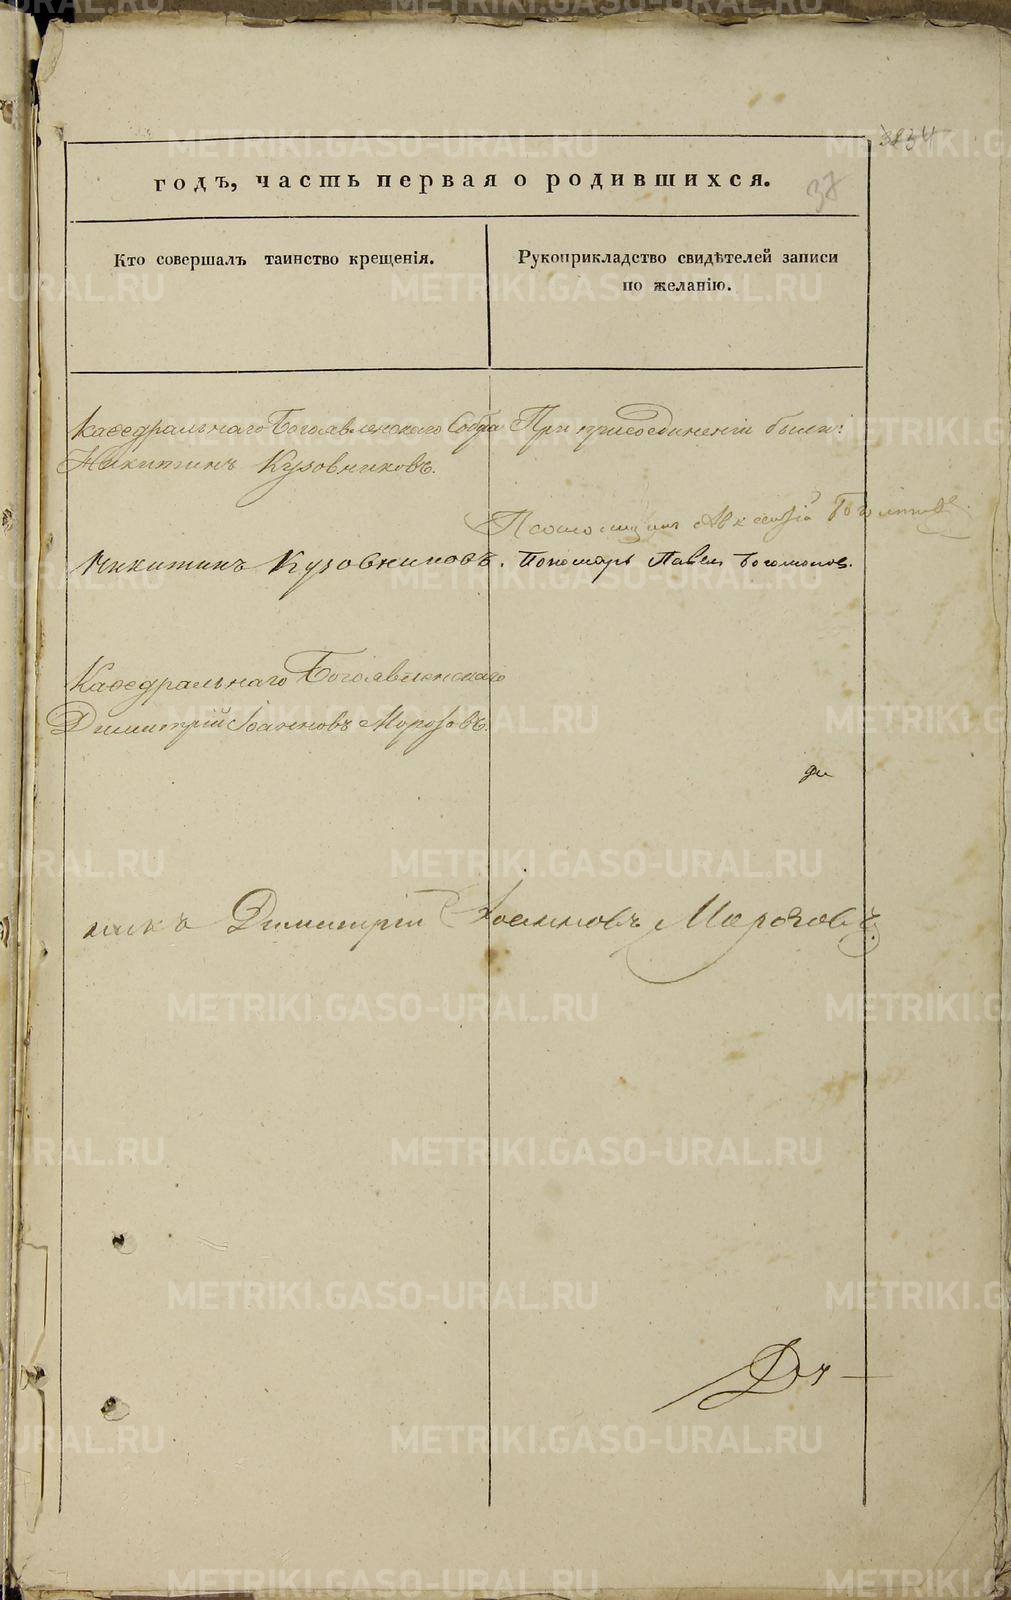 годъ, часть первая о родившихся.
37
Кто совершалъ таинство крещенія.
Рукоприкладство свидѣтелей записи
по желанію.
Каѳедральнаго Богоявленскаго Собра
Никитинъ Кузовниковъ.
При присоединеніи были:
Никитинъ Кузовниковъ.
Пономарь Павелъ
Каѳедральнаго Богоявленскаго
Димитрій Іоанновъ Морозовъ.
никъ Димитрій Іоанновъ Морозовъ.
METRIKI.GASO-URAL.RU